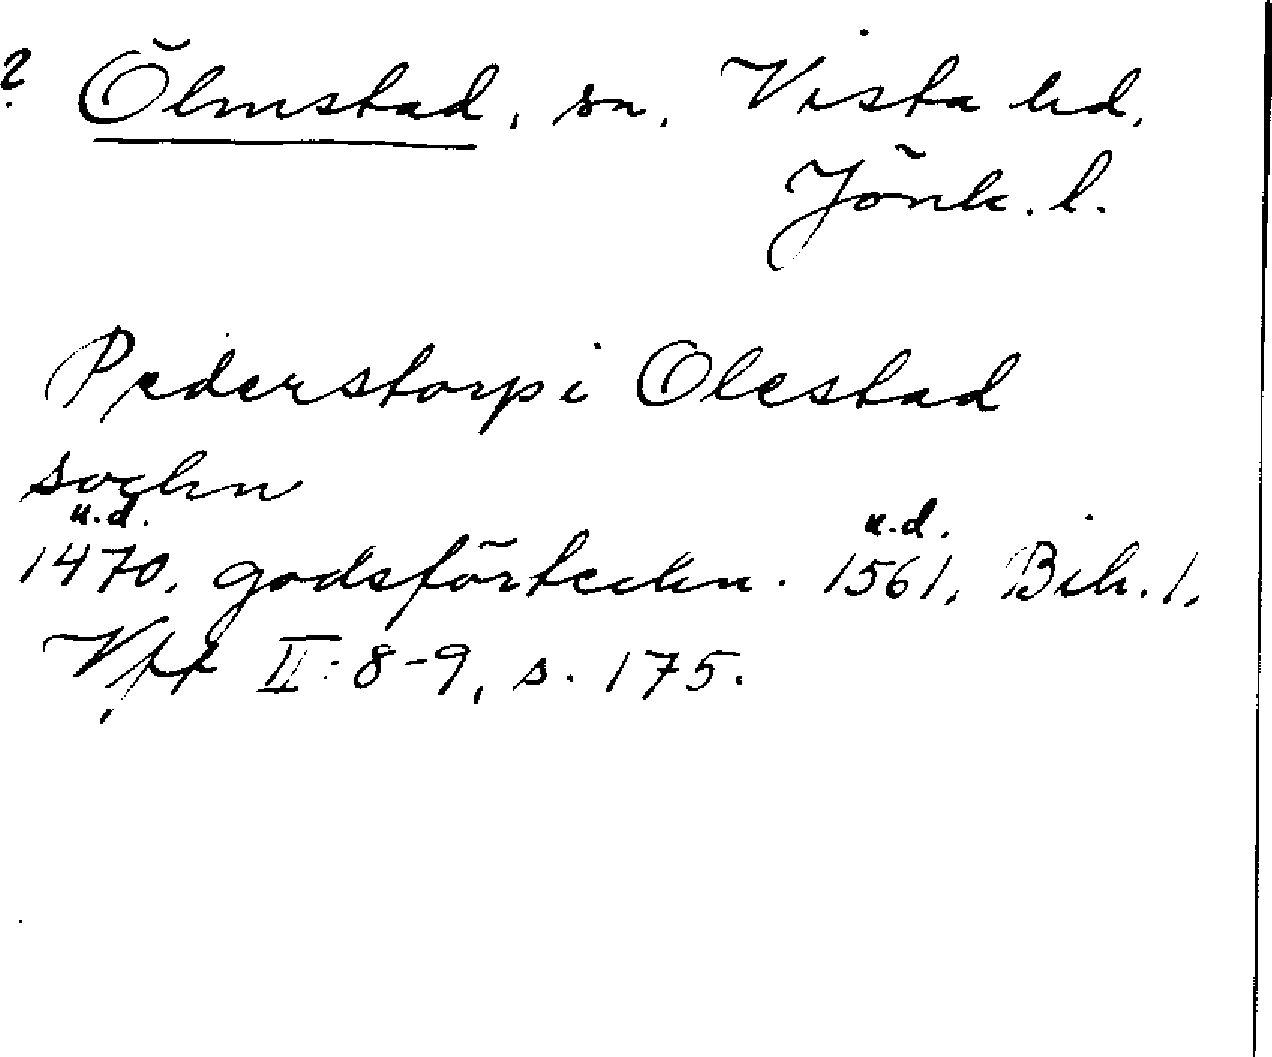 ? Ölmstad, sn, Vista hd,
Jönk. l.
Pederstorp i Olestad
sochn
u.d. u.d.
1470, godsförteckn. 1561, Bih. 1,
Vft II:8-9, s. 175.